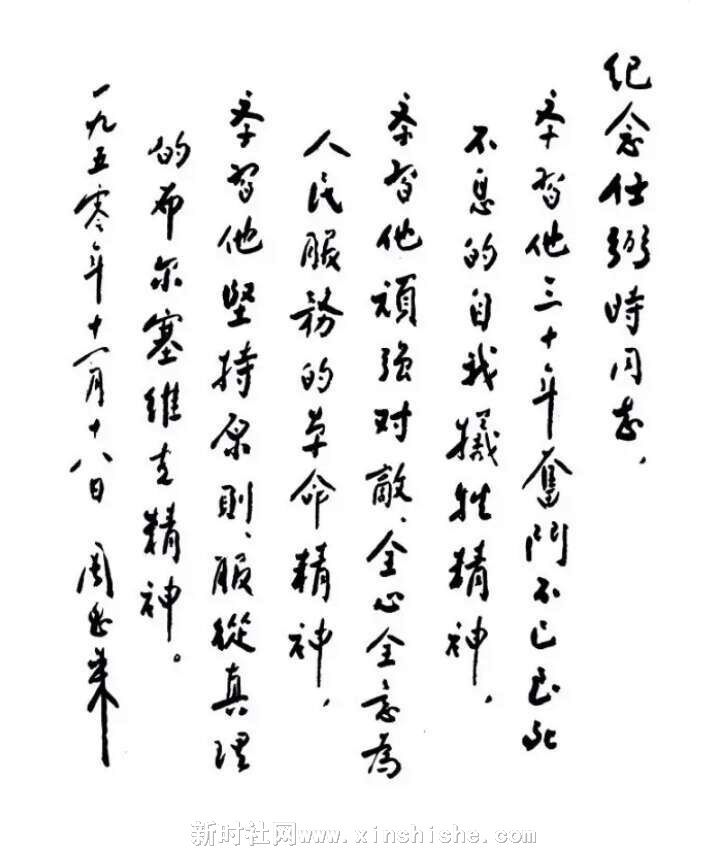 纪念任弼时同志，
学习他三十年奮鬥不已至死
不息的自我犠牲精神，
学习他頑强对敵、全心全意為
人民服務的革命精神，
学习他堅持原則、服從真理
的布尔塞維克精神。
一九五零年十一月十八日 周恩来
新时社网www.xinshishe.com